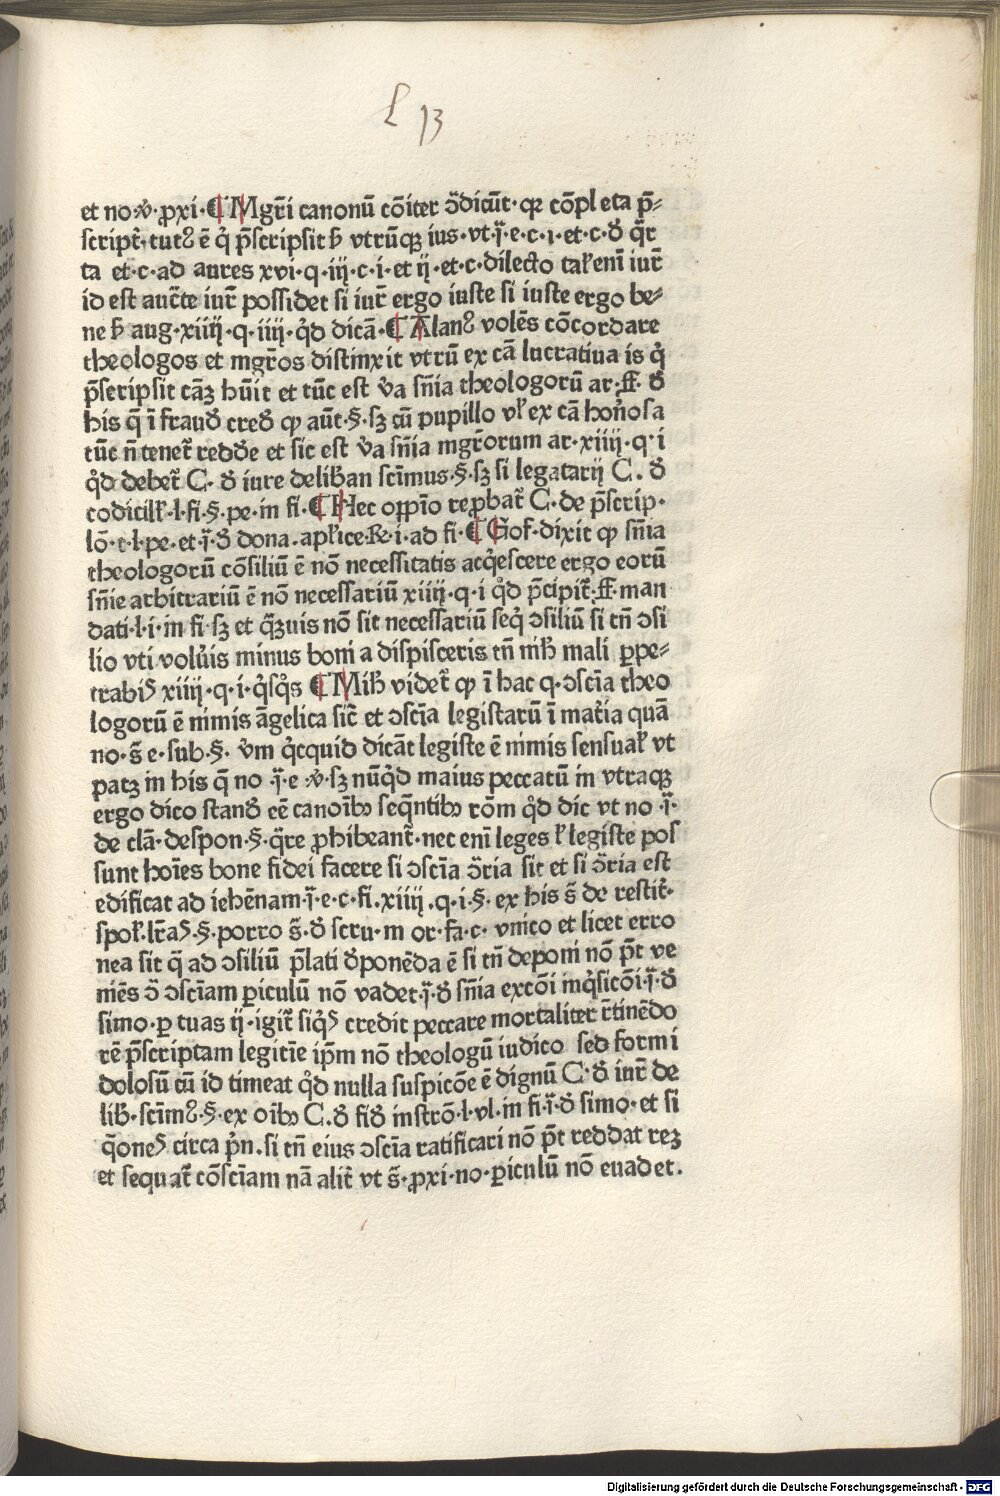 L 13
et no·ꝟ·ꝓxi·¶ Mgr̄i canonū cōiter ꝯ̄dicūt·qꝛ cōpleta p̄-
script̄·tutꝰ ē q̇ p̄scripsit ẜm vtrūqꝫ ius·vt·j̄·e·c·i·et·c·ð q̄r
ta et·c·ad aures xvi·q·iij·c·i·et ij·et·c·dilecto taƚ enī iur̄
id est auct̄e iur̄ possidet si iur̄ ergo iuste si iuste ergo be-
ne ẜ aug·xiiij·q·iiij·qd̄ dicā·¶ Alanꝰ volēs cōcordare
theologos et mgr̄os distinxit vtrū ex cā lucratiua is q̇
p̄scripsit cāꝫ hūit et tūc est v̄a sn̄ia theologorū ar·ff·ð
his q̄ ī fraud̄ cred̄ ꝙ aūt·§·sꝫ cū pupillo vƚ ex cā hon̄osa
tūc n̄ tenet̄ redd̄e et sic est v̄a sn̄ia mgr̄orum ar·xiiij·q·i
qd̄ debet̄ C·ð iure deliƀan scīmus·§·sꝫ si legatarij C·ð
codiciƚƚ·l·fi·§·pe·in fi·¶ Hec opp̄io reꝓbat̄ C·de p̄scrip·
lō·t·l·pe·et·j̄·ð dona·apƚice·R·i·ad fi·¶ Gof·dixit ꝙ sn̄ia
theologorū cōsiliū ē nō necessitatis acq̇escere ergo eorū
sn̄ie arbitrariū ē nō necessariū xiiij·q·i qd̄ p̄cipit̄·ff·man
dati·l·i·in fi·sꝫ et q̄ꝫuis nō sit necessariū seq̇ ꝯsiliū si tn̄ ꝯsi
lio vti volūis minus boni adispisceris tn̄ niħ mali ꝑpe-
trabiꝰ xiiij·q·i·q̇sq̇s ¶ Miħ videt̄ ꝙ ī hac q·ꝯscīa theo
logorū ē nimis āgelica sic̄ et ꝯscīa legistarū ī mat̄ia quā
no·s̄ e·sub·§·v̄m q̇cquid dicāt legiste ē nimis sensuaƚ vt
patꝫ in his q̄ no·j̄·e·ꝟ·sꝫ nūqd̄ maius peccatū in vtraqꝫ
ergo dico stand̄ eē canoīb₉ seq̄ntib₉ rōm qd̄ dic vt no·j̄·
de clā·despon·§·q̄re ꝓhibeant̄·nec enī leges ƚ legiste pos
sunt hoīes bone fidei facere si ꝯscīa ꝯ̄ria sit et si ꝯ̄ria est
edificat ad iehēnam·j̄·e·c·fi·xiiij·q·i·§·ex his s̄ de restit̄·
spoƚ·lr̄aꝰ·§·porro s̄·ð scru·in or·fa·c·vnico et licet erro
nea sit q̄ ad ꝯsiliū p̄lati ðponēda ē si tn̄ deponi nō p̄t ve
niēs ꝯ̄ ꝯscīam ꝑiculū nō vadet·j̄·ð sn̄ia excōi inq̇sicōi·j̄·ð
simo·ꝑ tuas ij·igit̄ siq̇s credit peccare mortaliter r̄tinēdo
rē p̄scriptam legitīe ip̄m nō theologū iudico sed formi
dolosū cū id timeat qd̄ nulla suspicōe ē dignū C·ð iur̄ de
liƀ·scīmꝰ·§·ex oīb₉ C·ð fið instrō·l·vl·in fi·j̄·ð simo·et si
q̄oneꝰ circa p̄n·si tn̄ eius ꝯscīa ratificari nō p̄t reddat reꝫ
et sequat̄ cōscīam nā alit̄ vt s̄·ꝓxi·no·ꝑiculū nō euadet.
Digitalisierung gefördert durch die Deutsche Forschungsgemeinschaft - DFG